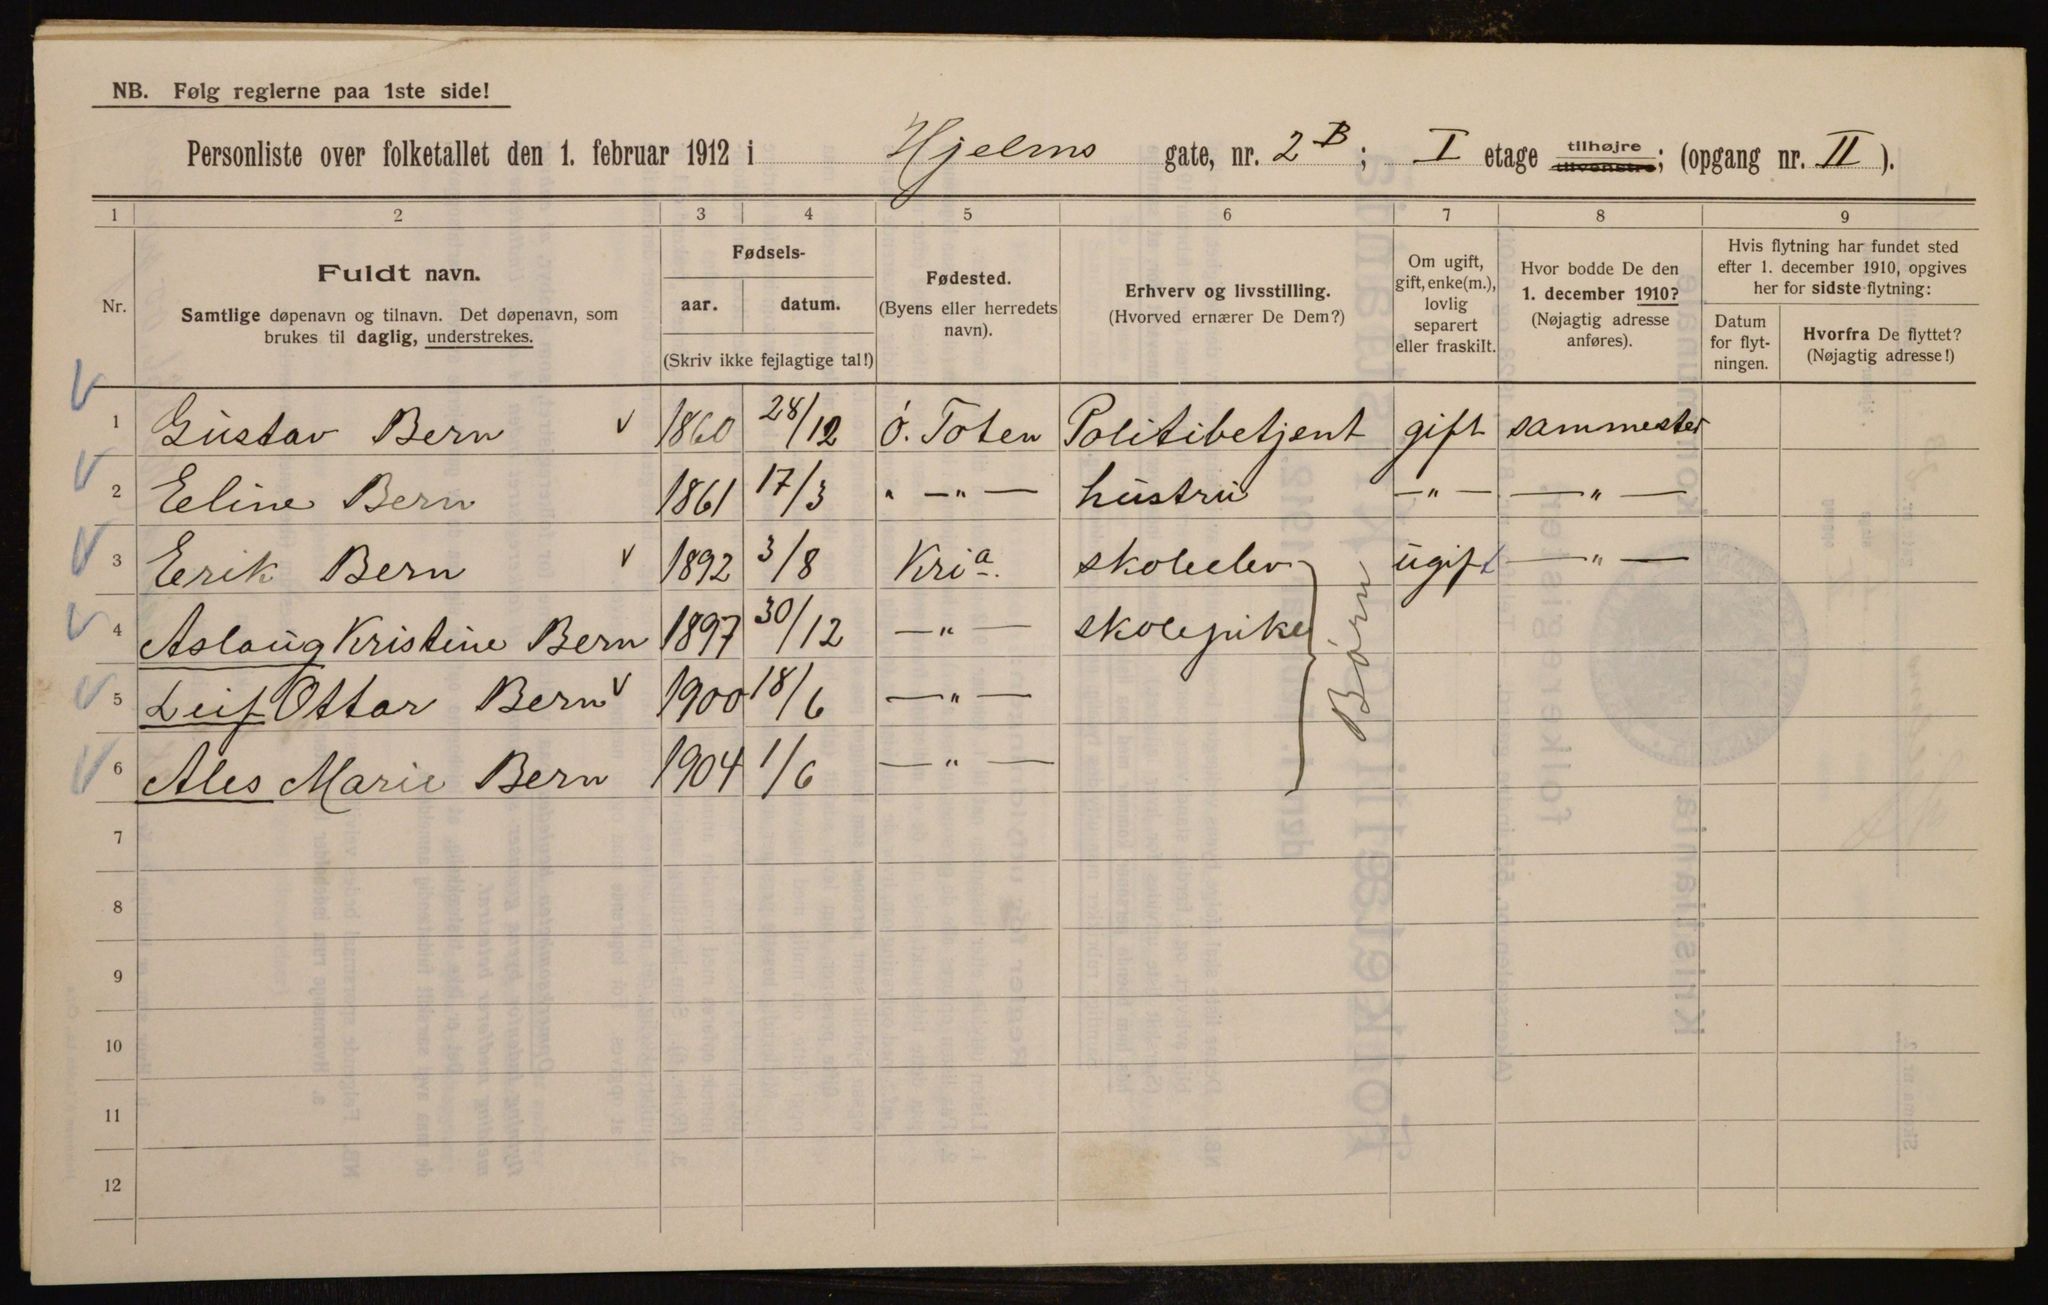 NB. Følg reglerne paa 1ste side!
Personliste over folketallet den 1. februar 1912 i Hjelms gate, nr. 2 B; I etage tilhøjre tilvenstre; (opgang nr. II).
1 2 3 4 5 6 7 8 9
Nr.
Fuldt navn.
Samtlige døpenavn og tilnavn. Det døpenavn, som
brukes til daglig, understrekes.
Fødsels-
aar. datum.
(Skriv ikke fejlagtige tal!)
Fødested.
(Byens eller herredets
navn).
Erhverv og livsstilling.
(Hvorved ernærer De Dem?)
Om ugift,
gift, enke(m.),
lovlig
separert
eller fraskilt.
Hvor bodde De den
1. december 1910?
(Nøjagtig adresse
anføres).
Hvis flytning har fundet sted
efter 1. december 1910, opgives
her for sidste flytning:
Datum
for flyt-
ningen.
Hvorfra De flyttet?
(Nøjagtig adresse!)
1 Gustav Bern v 1860 28/12 Ö. Toten Politibetjent gift sammested
2 Eline Bern 1861 17/3 " —"— hustru —"— —"—
3 Erik Bern v 1892 3/8 Kria. skoleelev ugift —"—
4 Aslaug Kristine Bern 1897 30/12 —"— skolepike
5 Leif Ottar Bern v 1900 18/6 —"—
6 Ales Marie Bern 1904 1/6 —"—
Börn
7
8
9
10
11
12